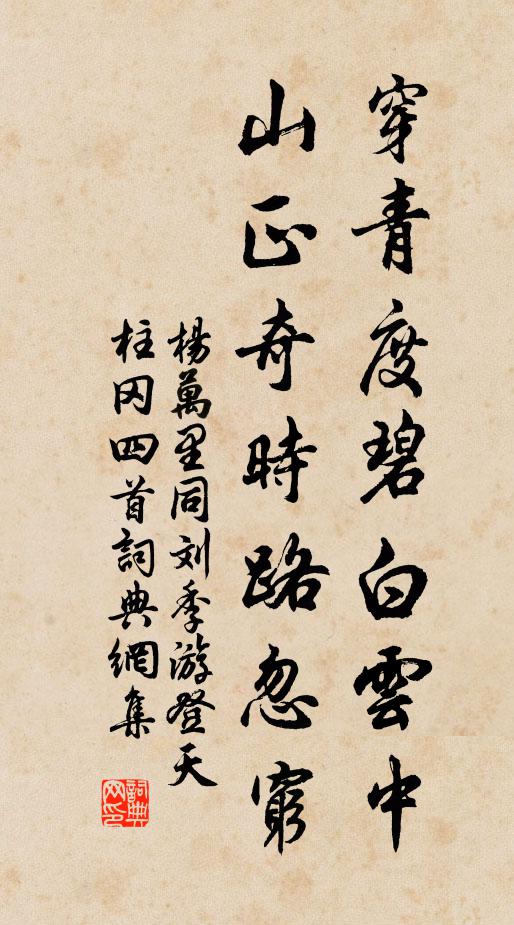 穿青度碧白雲中
山正奇時路忽窮
楊萬里同刘季游登天
柱冈四首詞典網集
詞典网印